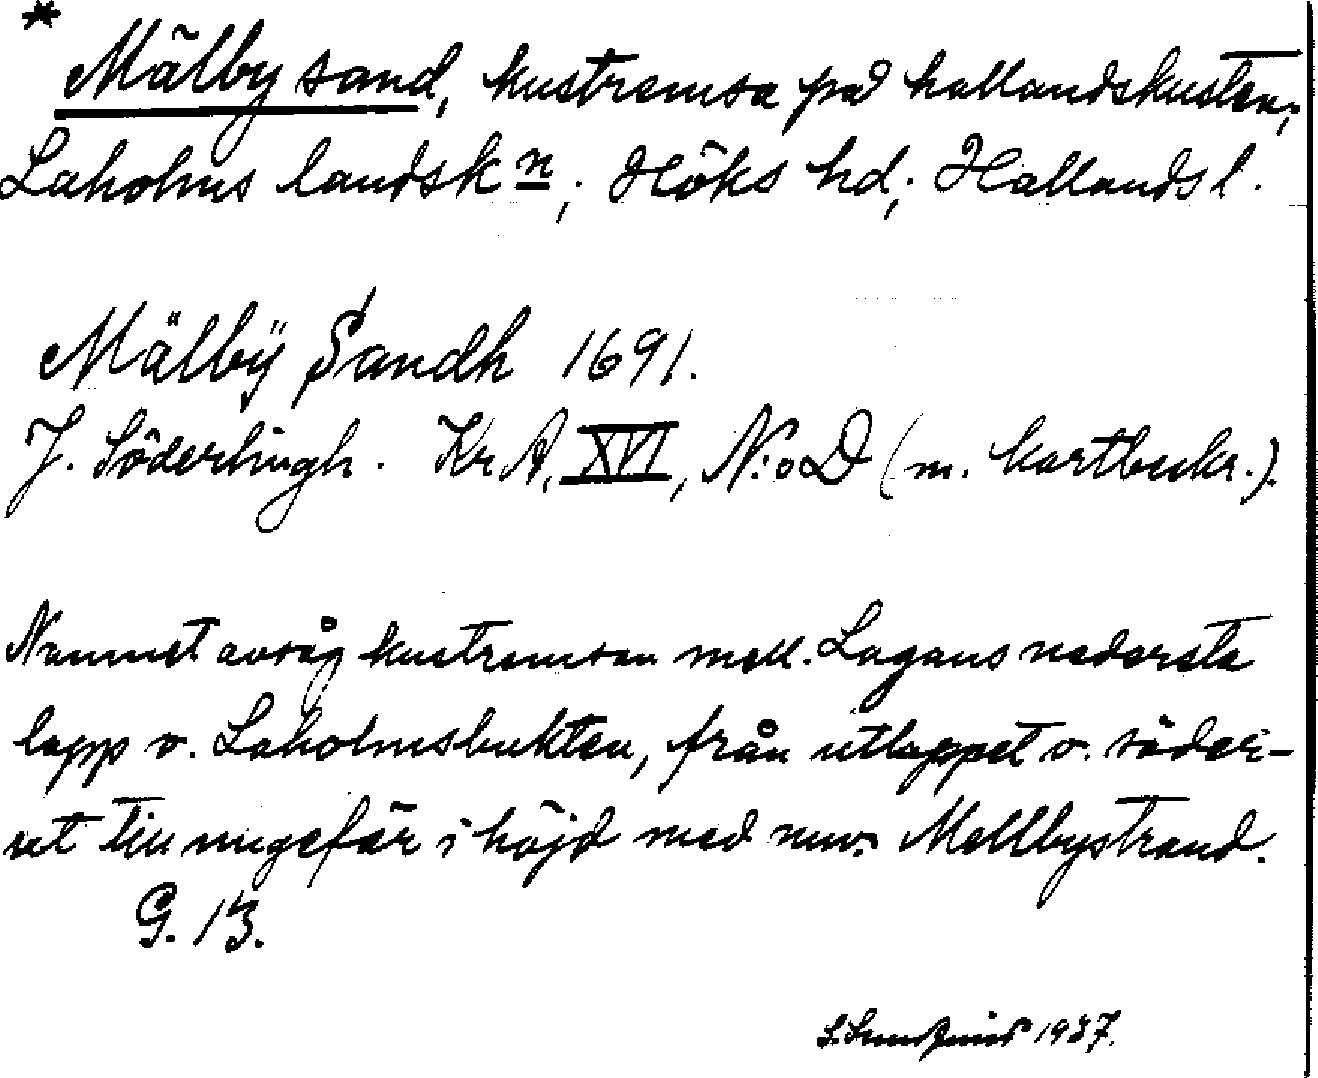 *
Mälby sand, kustremsa på hallandskusten;
Laholms landsk n; Höks hd; Hallands l.
Mälbÿ Sandh 1691.
J. Söderlingh. Kr A, XVI, N:o D (m. kartbeskr.).
Namnet avsåg kustremsan mell. Lagans nedersta
lopp o. Laholmsbukten, från utloppet o. söder-
ut till ungefär i höjd med nuv. Mellbystrand.
G. 13.
1937.